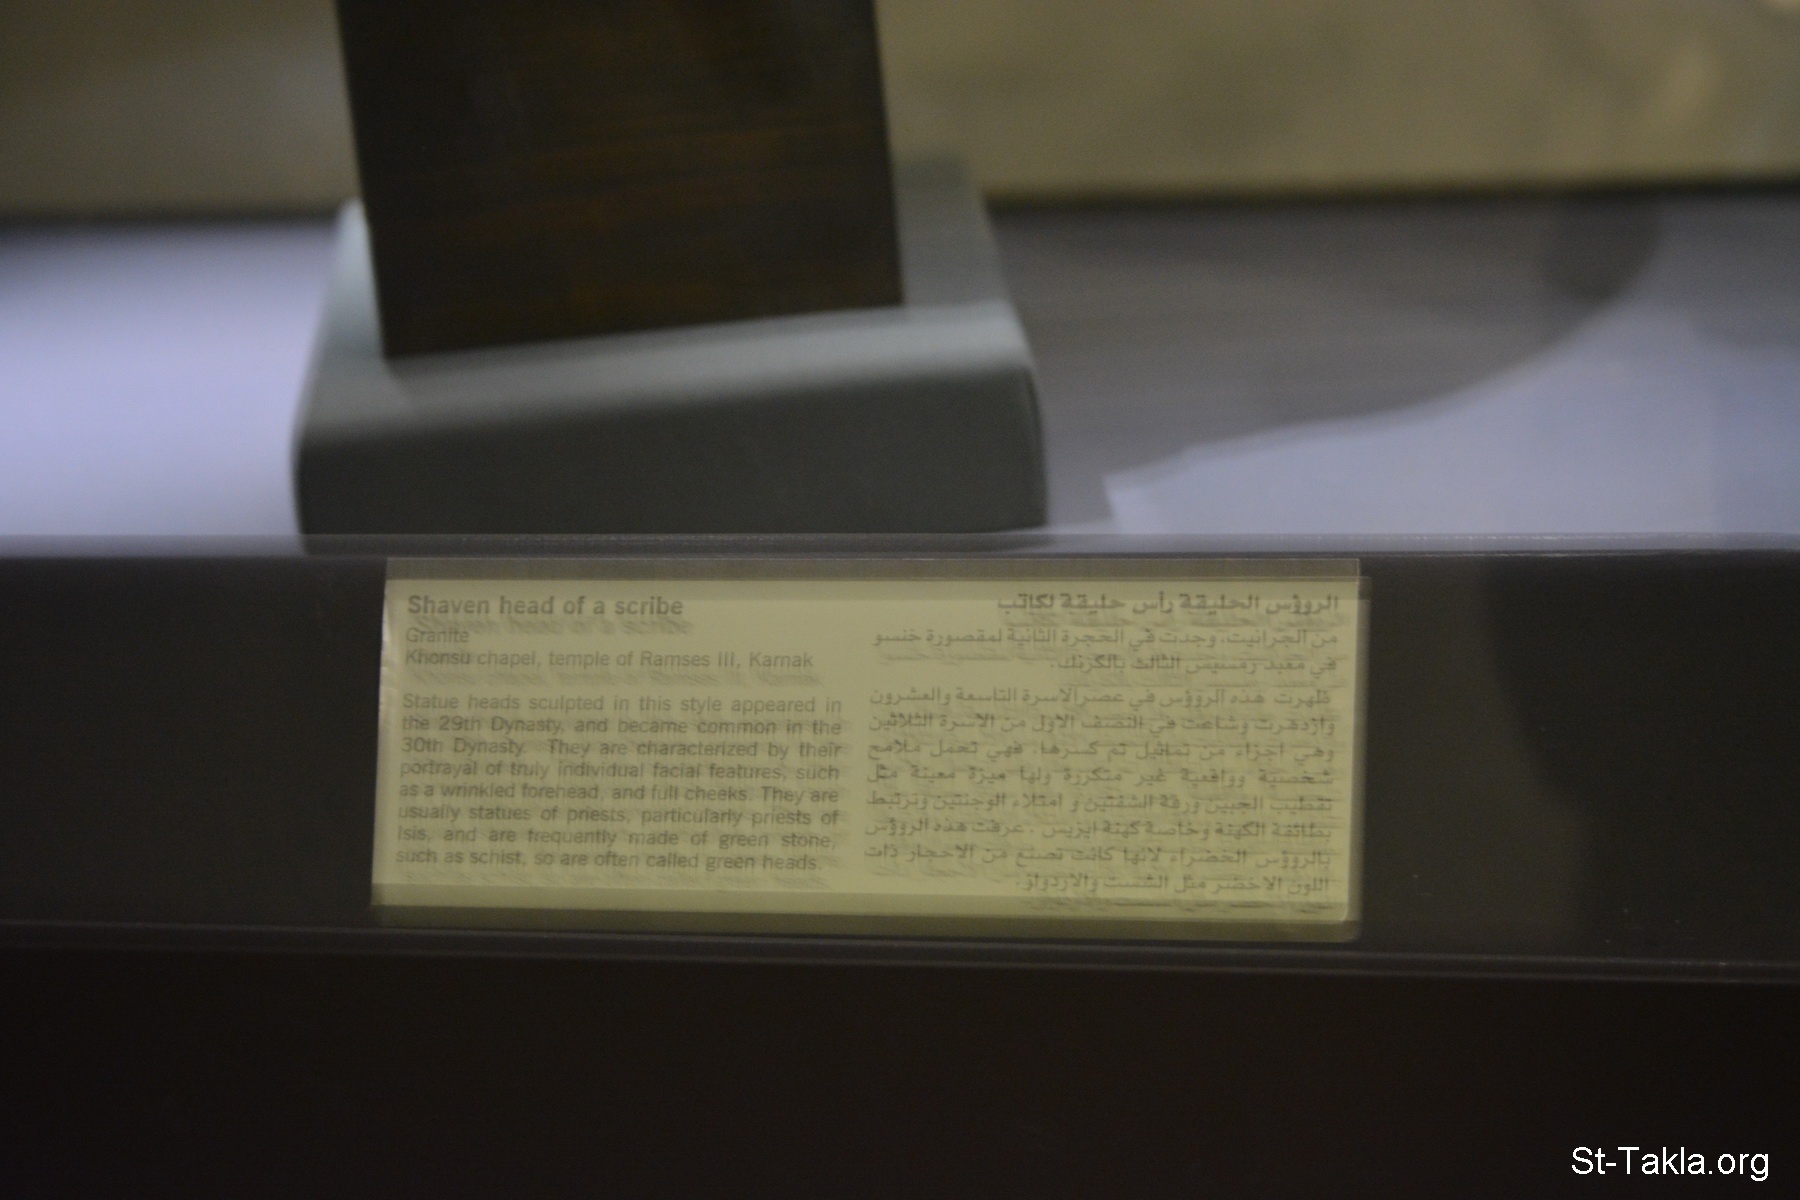 Shaven head of a scribe
Granite
Khonsu chapel, temple of Ramses III, Karnak
Statue heads sculpted in this style appeared in
the 29th Dynasty, and became common in the
30th Dynasty. They are characterized by their
portrayal of truly individual facial features, such
as a wrinkled forehead, and full cheeks. They are
usually statues of priests, particularly priests of
Isis, and are frequently made of green stone,
such as schist, so are often called green heads.
الرووٴس الحليقة رأس حليقة لكاتب
من الجرانيت، وجدت في الحجرة الثانية لمقصورة خنسو
في معبد رمسيس الثالث بالكرنك.
ظهرت هذه الرووٴس في عصر الاسرة التاسعة والعشرون
وازدهرت وشاعت في النصف الاول من الاسرة الثلاثين
وهي اجزاء من تماثيل تم كسرها، فهي تحمل ملامح
شخصية وواقعية غير متكررة ولها ميزة معينة مثل
تقطيب الجبين ورقة الشفتين و امتلاء الوجنتين وترتبط
بطائفة الكهنة وخاصة كهنة ايزيس . عرفت هذه الرووٴس
بالرووٴس الخضراء لانها كانت تصنع من الاحجار ذات
اللون الاخضر مثل الشست والاردواز.
St-Takla.org